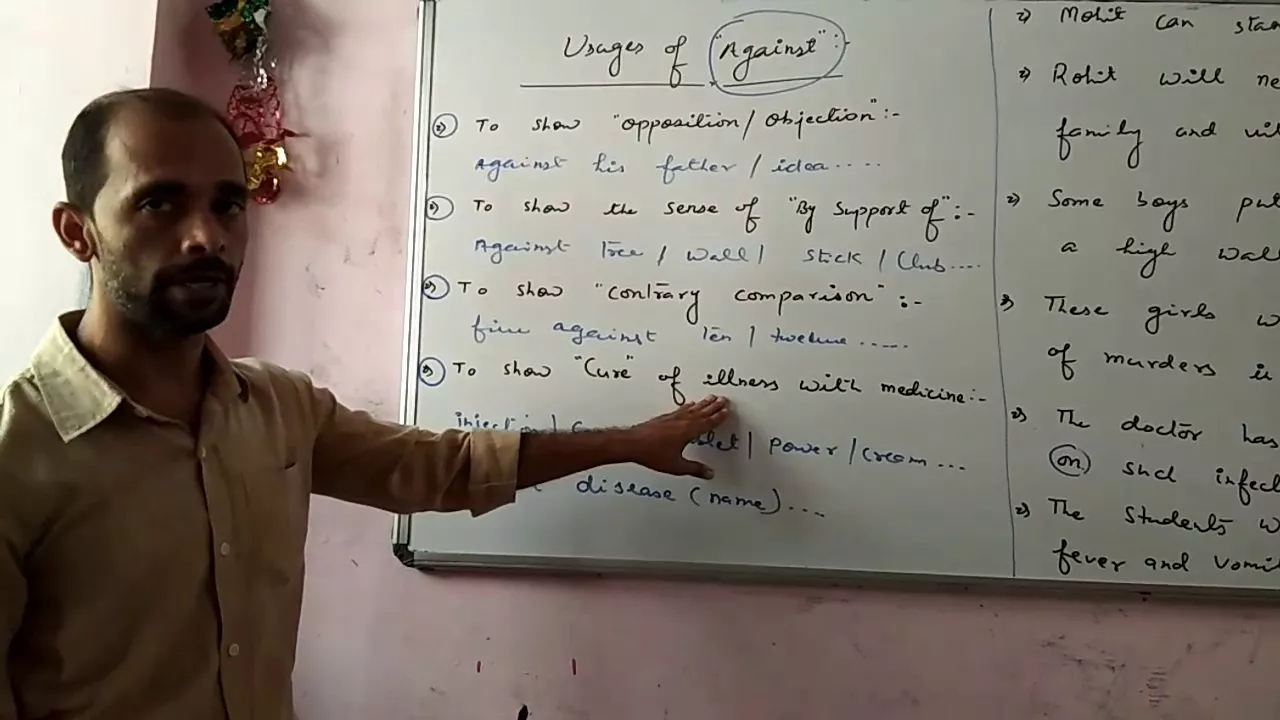 Usages of "Against":-
To show "opposition/objection":-
Against his father / idea.....
To show the sense of "By Support of":-
Against Tree / wall / stick / Club....
To show "contrary comparison":-
five against Ten / twelve.....
To show "Cure" of illness with medicine:-
power / cream ...
disease (name)....
Mohit can
Rohit will
family and
Some boys
a high
These girls
of murders
The doctor has
on
The students
fever and